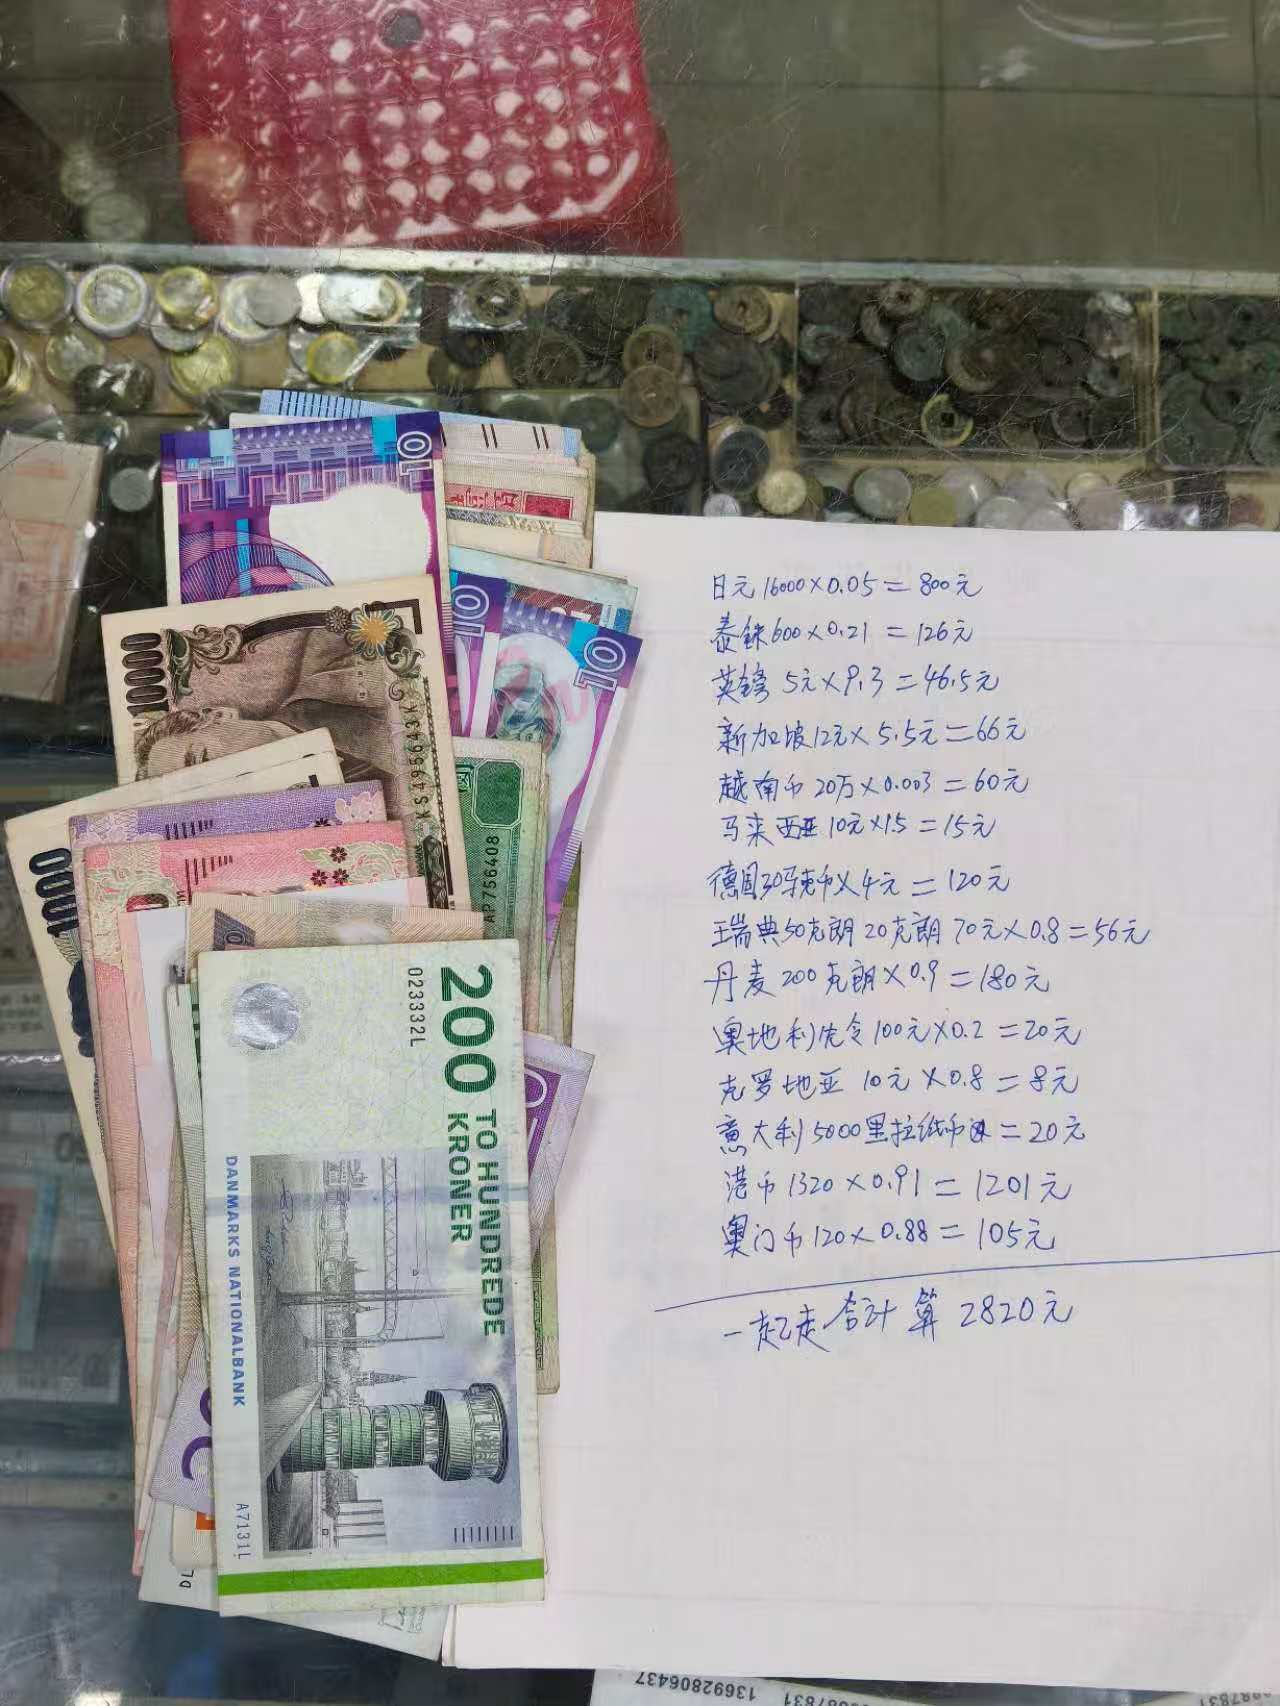 10
10
10
10000
KS499643K
1000
AP756408
200
023332L
TO HUNDREDE
KRONER
DANMARKS NATIONALBANK
A7131L
日元16000×0.05=800元
泰铢600×0.21=126元
英镑 5元×9.3=46.5元
新加坡12元×5.5元=66元
越南币 20万×0.003=60元
马来西亚10元×1.5=15元
德国30马克币×4元=120元
瑞典50克朗20克朗70元×0.8=56元
丹麦200克朗×0.9=180元
奥地利先令100元×0.2=20元
克罗地亚 10元×0.8=8元
意大利5000里拉纸币=20元
港币1320×0.91=1201元
奥门币120×0.88=105元
一起走合计算 2820元
13692806437